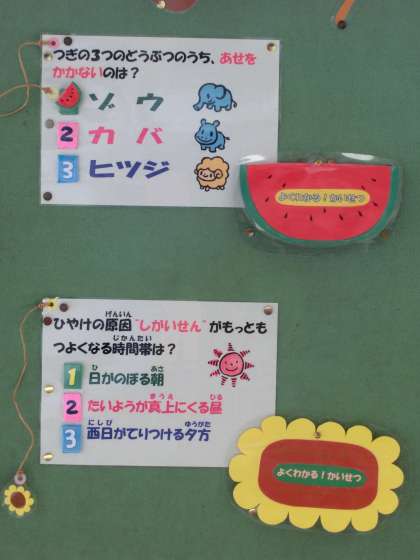 つぎの3つのどうぶつのうち、あせを
かかないのは？
ゾウ
2 カバ
3 ヒツジ
よくわかる！かいせつ
ひやけの原因"しがいせん"がもっとも
げんいん
つよくなる時間帯は？
じかんたい
1 日がのぼる朝
ひ あさ
2 たいようが真上にくる昼
まうえ ひる
3 西日がてりつける夕方
にしび ゆうがた
よくわかる！かいせつ